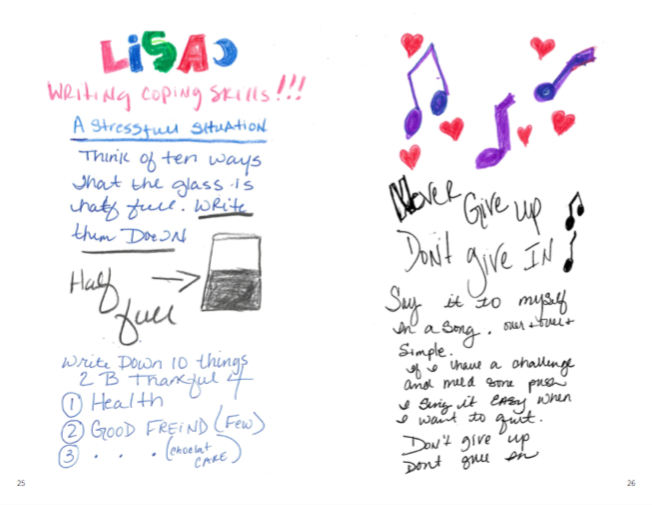 LiSA
WRiTiNG COPING SKILLS!!!
A Stressfull Situation
Think of ten ways
that the glass is
half full. Write
them DoWN
Half
full
Write Down 10 things
2 B Thankful 4
1 Health
2 GOOD FREIND (Few)
3 . . . (Choclat
CARE)
25
Never
Give up
Don't give IN
Say it to myself
in a song. over + over +
Simple.
if I have a challenge
and need some push
I sing it EASY when
I want to quit.
Don't give up
Dont give in
26